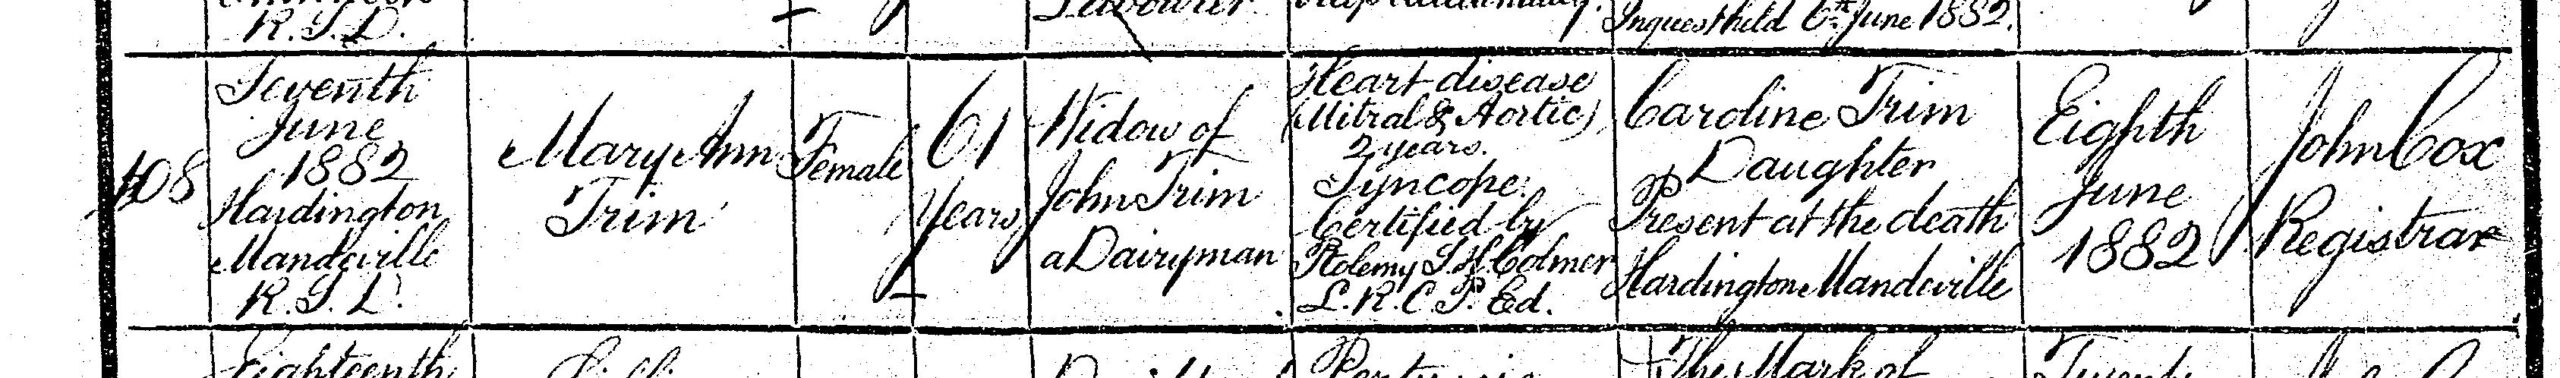 R.S.D.
Labourer
Inquest held 6th June 1882.
408
Seventh
June
1882
Hardington
Mandeville
R.S.D.
Mary Ann
Trim
Female
61
Years
Widow of
John Trim
a Dairyman
Heart disease
(Mitral & Aortic)
2 years.
Syncope.
Certified by
Ptolemy S.H. Colmer
L.R.C.P. Ed.
Caroline Trim
Daughter
Present at the death
Hardington Mandeville
Eighth
June
1882
John Cox
Registrar
Eighteenth
The Mark of